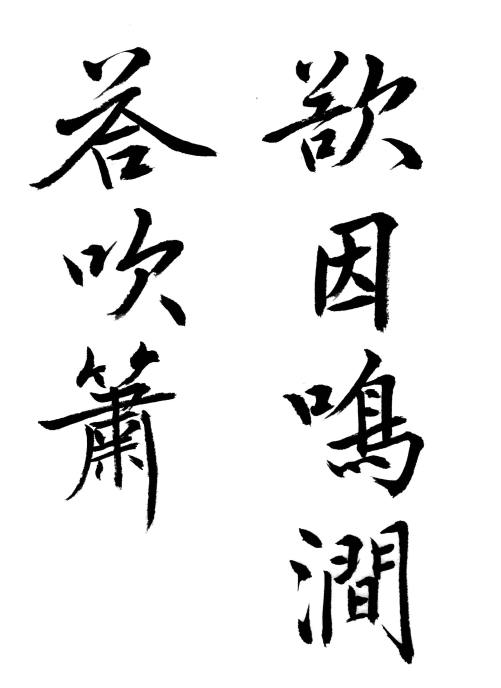 欲因鳴澗
答吹簫